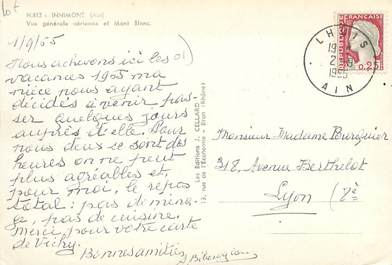 Lot
N.212 - INNIMONT (Ain)
Vue générale aérienne et Mont Blanc.
1/9/65
Nous achevons ici les
vacances 1965 ma
nièce nous ayant
décidés à venir pas-
ser quelques jours
auprès d'elle. Pour
nous deux ce sont des
heures on ne peut
plus agréables et,
pour moi, le repos
total : pas de ména-
ge, pas de cuisine.
Merci pour votre carte
de Vichy.
Bonnes amitiés
Les Editions J. CELLARD
Bron (Rhône)
LHUIS
AIN
REPUBLIQUE
FRANÇAISE
0,25
Monsieur Madame
318, Avenue Berthelot
Lyon (8e)